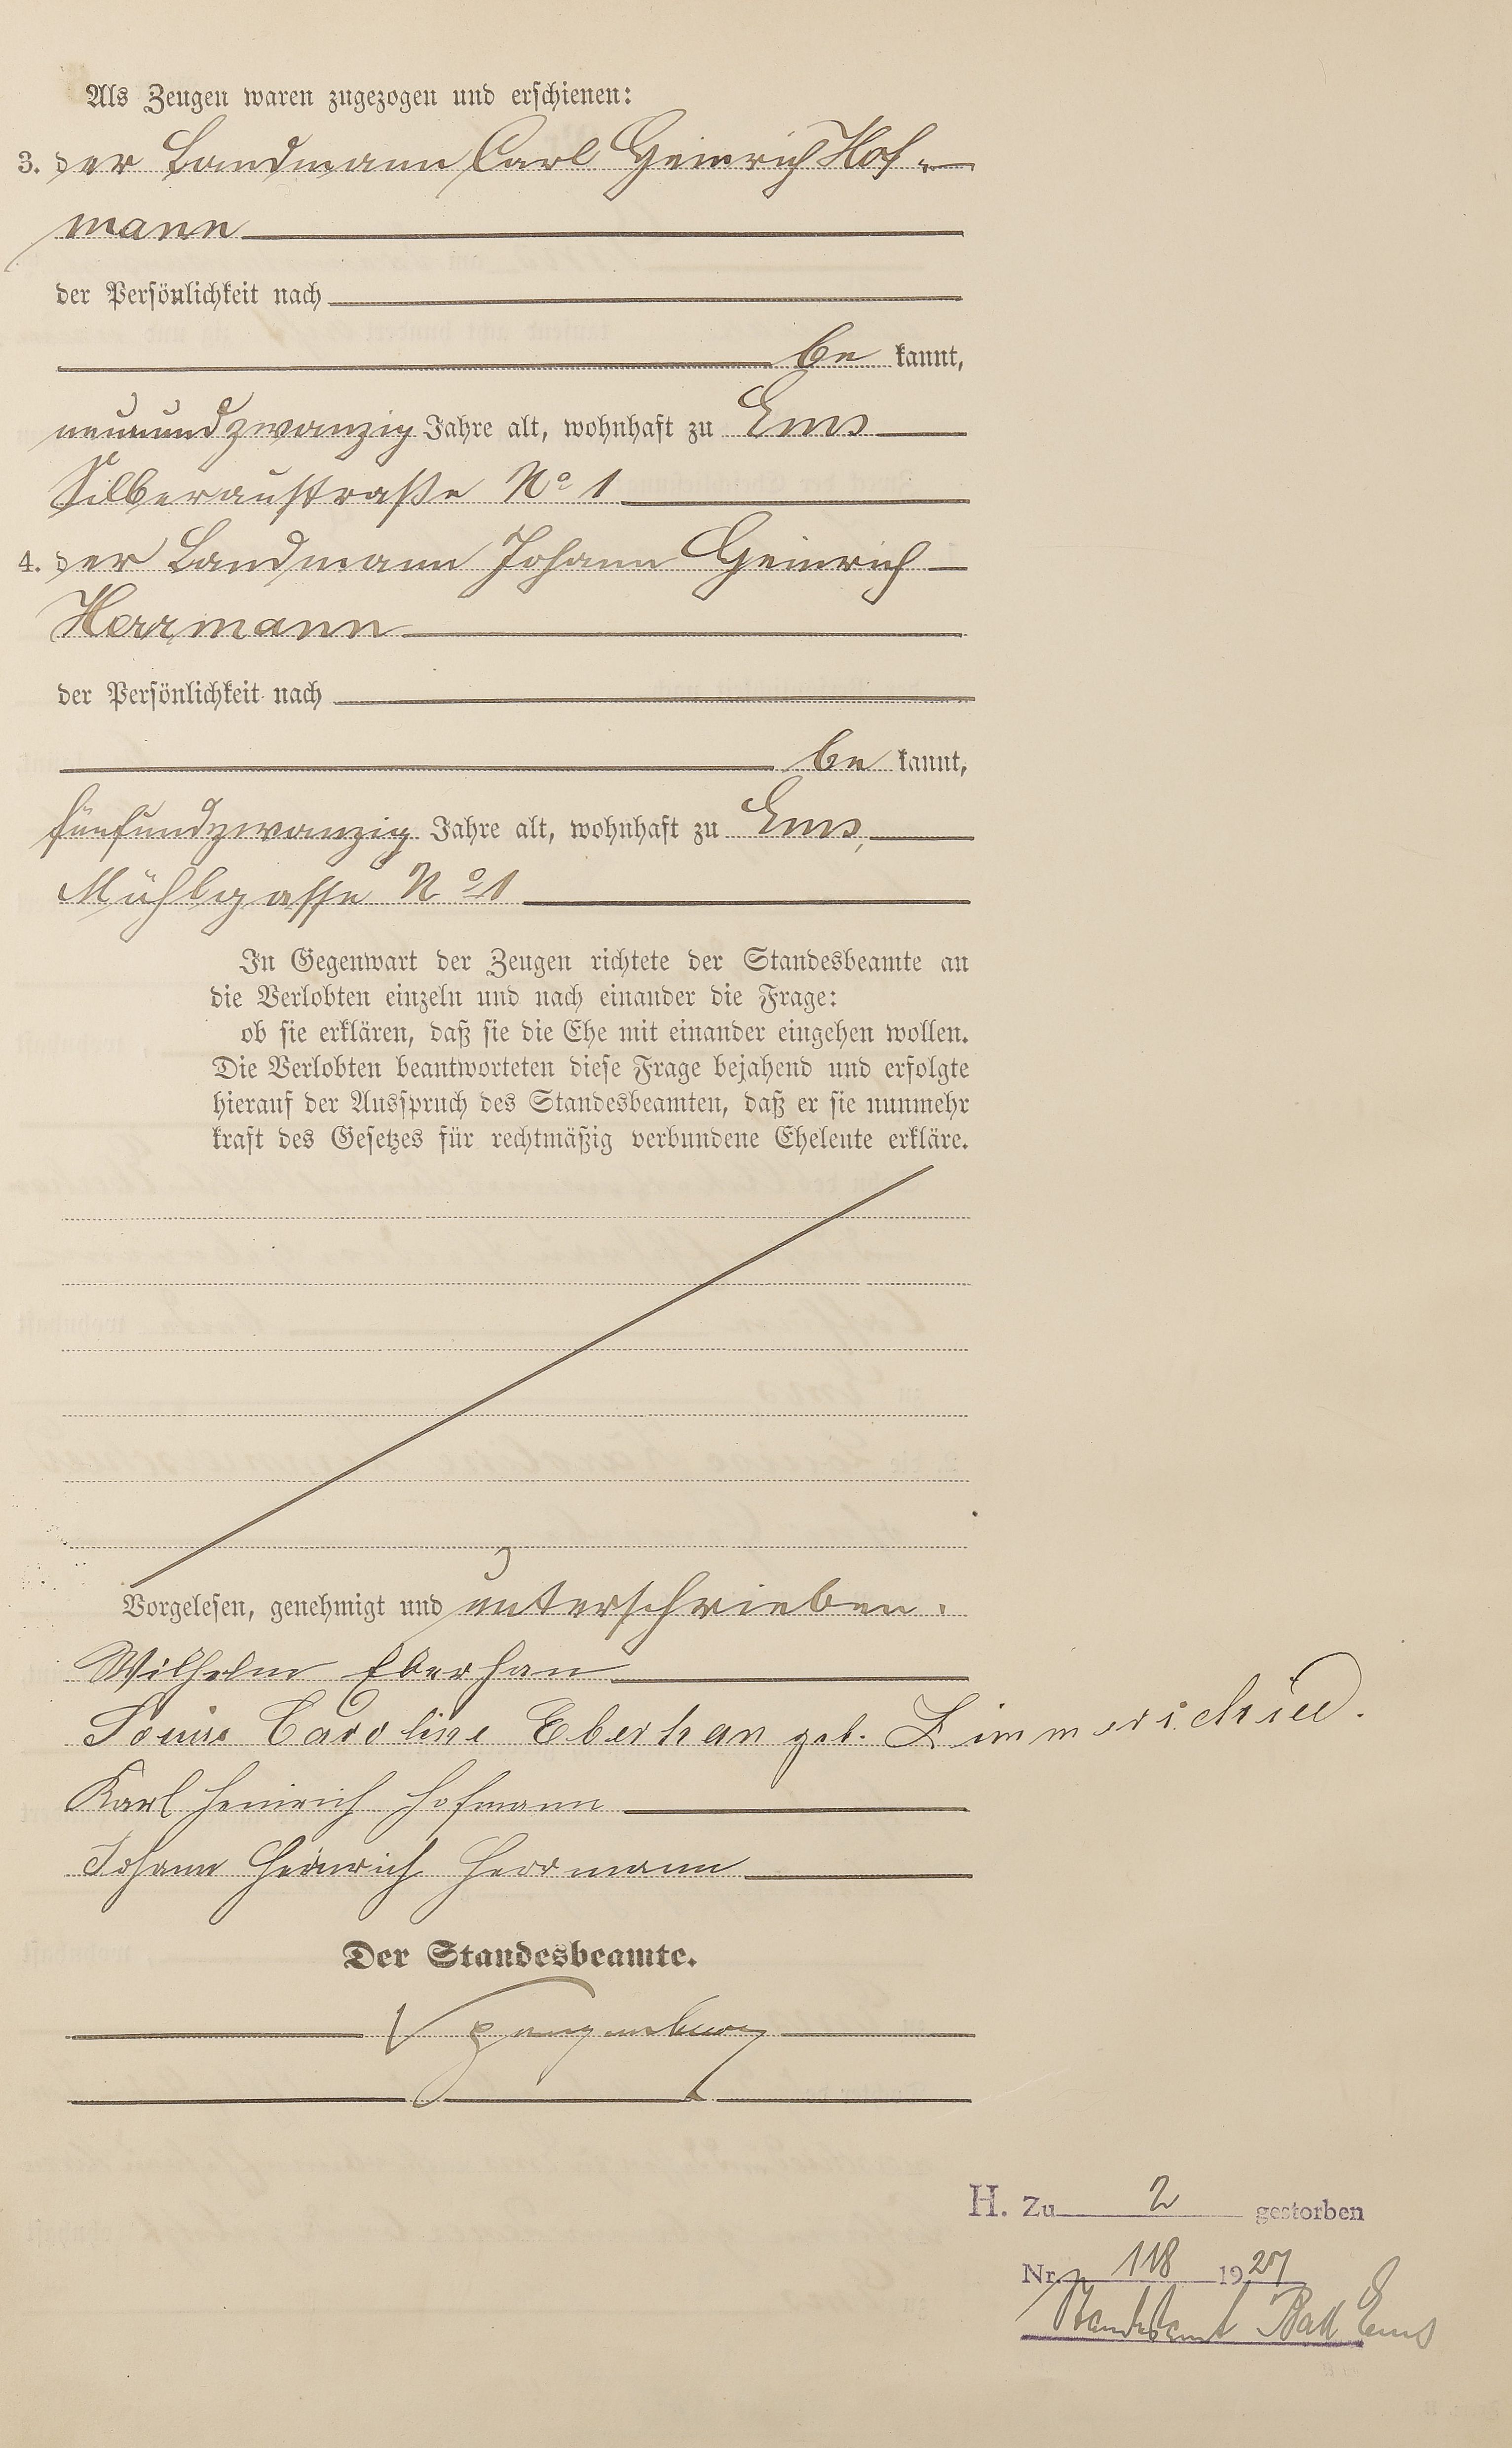 Als Zeugen waren zugezogen und erschienen:
3. der Landmann Carl Heinrich Hof-
mann
der Persönlichkeit nach
be kannt,
neunundzwanzig Jahre alt, wohnhaft zu Ems
Silberaustraße No 1
4. der Landmann Johann Heinrich
Herrmann
der Persönlichkeit nach
be kannt,
fünfundzwanzig Jahre alt, wohnhaft zu Ems,
Mühlgasse No 1
In Gegenwart der Zeugen richtete der Standesbeamte an
die Verlobten einzeln und nach einander die Frage:
ob sie erklären, daß sie die Ehe mit einander eingehen wollen.
Die Verlobten beantworteten diese Frage bejahend und erfolgte
hierauf der Ausspruch des Standesbeamten, daß er sie nunmehr
kraft des Gesetzes für rechtmäßig verbundene Eheleute erkläre.
Vorgelesen, genehmigt und unterschrieben.
Wilhelm Eberhan
Louise Caroline Eberhan geb. Zimmerschied.
Karl Heinrich Hofmann
Johann Heinrich Herrmann
Der Standesbeamte.
H. Zu 2 gestorben
Nr. 118 1927
Standesamt Bad Ems